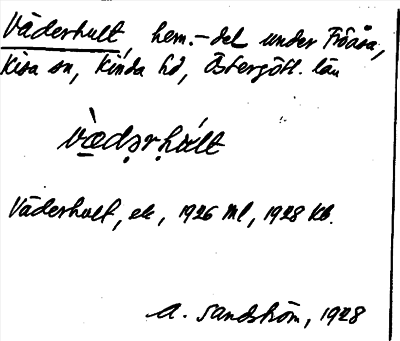 Väderhult, hem.-del under Fröåsa,
Kisa sn, Kinda hd, Östergötl. län
Väderhult, ek, 1926 ml, 1928 kb.
A. Sandström, 1928